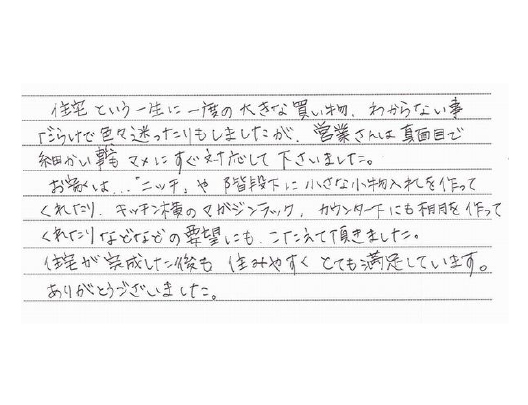 住宅という一生に一度の大きな買い物、わからない事
だらけで色々迷ったりもしましたが、営業さんは真面目で
細かい事もマメにすぐ対応して下さいました。
お家は…"ニッチ"や階段下に小さな小物入れを作って
くれたり、キッチン横のマガジンラック、カウンター下にも棚を作って
くれたりなどなどの要望にも、こたえて頂きました。
住宅が完成した後も住みやすくとても満足しています。
ありがとうございました。